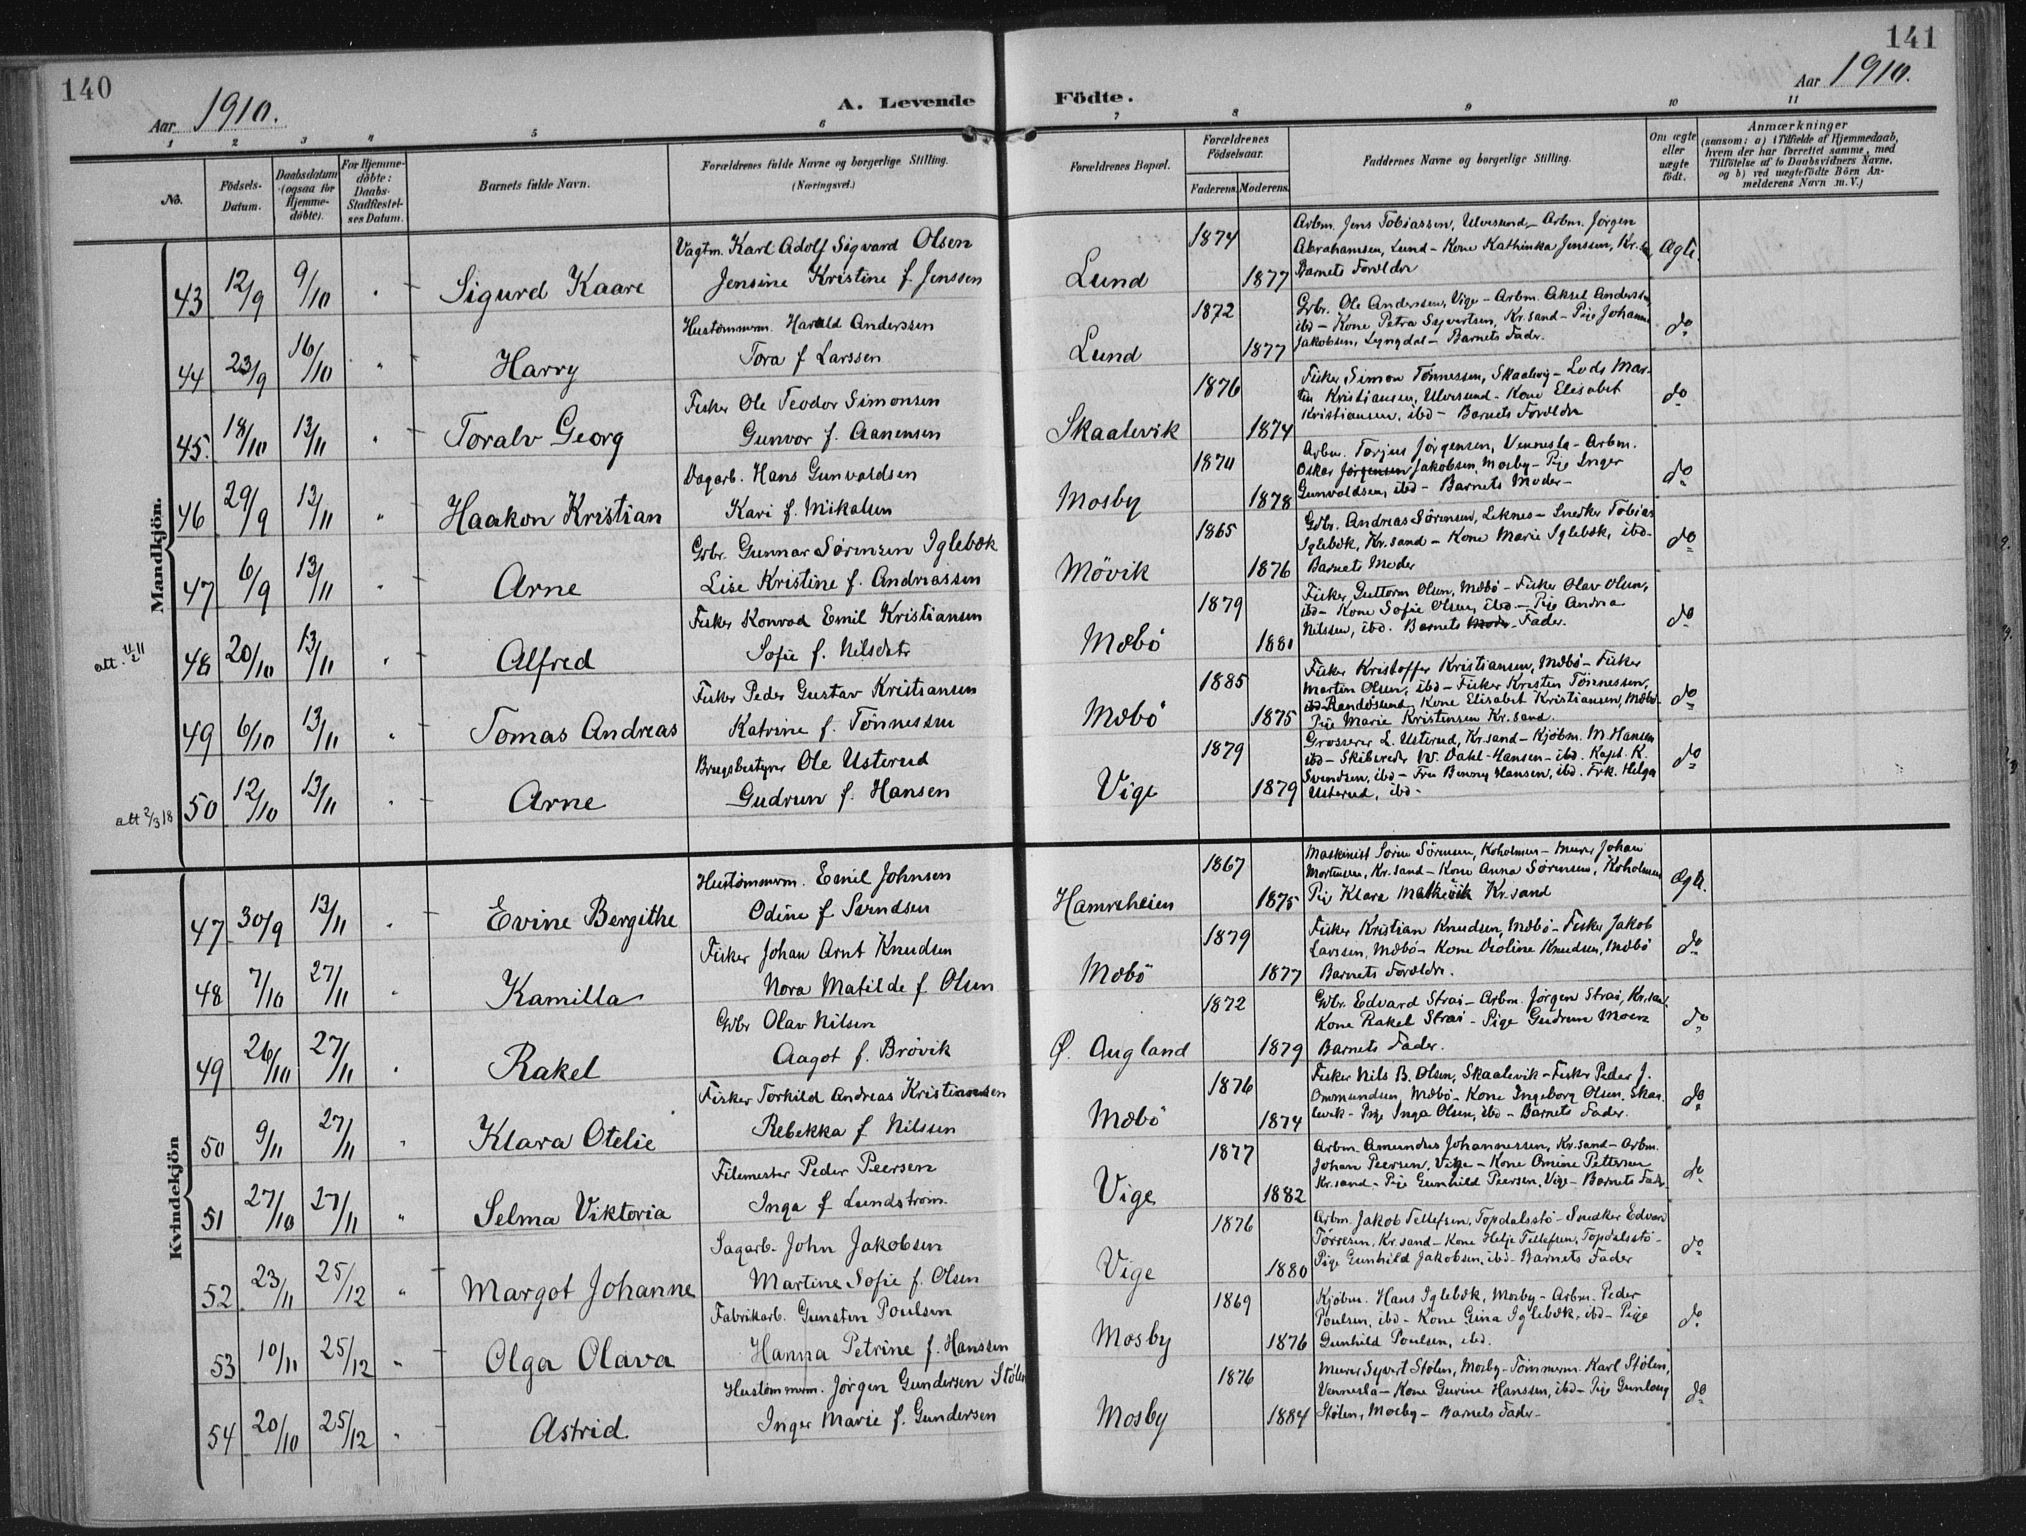 140
Aar 1910.
A. Levende
1 2 3 4 5 6
No.
Födsels-Datum.
Daabsdatum (ogsaa for Hjemme-döbte).
For Hjemme-döbte: Daabs-Stadfæstel-ses Datum.
Barnets fulde Navn.
Forældrenes fulde Navne og borgerlige Stilling.
(Næringsvei.)
Mandkjön.
43 12/9 9/10 " Sigurd Kaare
Vagtm. Karl Adolf Sigvard Olsen
Jensine Kristine f. Jenssen
44 23/9 16/10 " Harry
Hustømmerm. Harald Anderssen
Tora f Larssen
45. 18/10 13/11 " Toralv Georg
Fisker Ole Teodor Simonsen
Gunvor f. Aanensen
46 29/9 13/11 " Haakon Kristian
Dagarb. Hans Gunvaldsen
Kari f. Mikalsen
47 6/9 13/11 " Arne
Gbr. Gunnar Sørensen Iglebæk
Lise Kristine f. Andreassen
48 20/10 13/11 " Alfred
Fisker Konrad Emil Kristiansen
Sofie f. Nilsdatr
49 6/10 13/11 " Tomas Andreas
Fisker Peder Gustav Kristiansen
Katrine f. Tønnessen
att 2/3 18
50 12/10 13/11 " Arne
Brugsbestyrer Ole Usterud
Gudrun f. Hansen
Kvindekjön
47 30/9 13/11 " Evine Bergithe
Hustømmerm. Emil Johnsen
Odine f Svendsen
48 7/10 27/11 " Kamilla
Fisker Johan Arnt Knudsen
Nora Matilde f Olsen
49 26/10 27/11 " Rakel
Gbr Olav Nilsen
Aagot f. Brøvik
50 9/11 27/11 " Klara Otelie
Fisker Torkild Andreas Kristiansen
Rebekka f Nilssen
51 27/10 27/11 " Selma Viktoria
Filemester Peder Peersen
Inga f Lundstrøm.
52 23/11 25/12 " Margot Johanne
Sagarb. John Jakobsen
Martine Sofie f. Olsen
53 10/11 25/12 " Olga Olava
Fabrikarb. Gunsten Poulsen
Hanna Petrine f. Hanssen
54 20/10 25/12 " Astrid
Hustømmerm. Jörgen Gundersen Stölen
Inger Marie f. Gundersen
141
Aar 1910.
Födte.
7 8 9 10 11
Forældrenes Bopæl.
Forældrenes Födselsaar.
Faderens. Moderens.
Faddernes Navne og borgerlige Stilling.
Om ægte eller uægte födt.
Anmærkninger
(saasom: a) i Tilfælde af Hjemmedaab,
hvem der har forrettet samme, med
Tilföielse af to Daabsvidners Navne,
og b) ved uægtefödte Börn An-
melderens Navn m. V.)
Lund 1874 1877
Arbm. Jens Tobiassen, Ulvesund – Arbm. Jørgen
Abrahamsen, Lund – Kone Kathinka Jenssen, Kr.sa
Barnets Forældre
Ægte.
Lund 1872 1877
Gbr. Ole Anderssen, Vige – Arbm. Aksel Anderssen
ibd – Kone Petra Syvertsen, Kr.sand – Pige Johanne
Jakobsen, Lyngdal – Barnets Fader.
do
Skaalevik 1876 1874
Fisker Simon Tønnessen, Skaalevig – Lods Mar-
tin Kristiansen, Ulvesund – Kone Elisabet
Kristiansen, ibd – Barnets Forældre
do
Mosby 1870 1878
Arbm. Torjus Jørgensen, Vennesla – Arbm.
Oskar Jørgensen Jakobsen, Mosby – Pige Inger
Gunvaldsen, ibd – Barnets Moder –
do
Mövik 1865 1876
Gdbr. Andreas Sørensen, Leknes – Snedker Tobias
Iglebæk, Kr.sand – Kone Marie Iglebæk, ibd –
Barnets Moder
do
Mæbö 1879 1881
Fisker Guttorm Olsen, Mæbö – Fisker Olav Olsen,
ibd – Kone Sofie Olsen, ibd – Pige Andrea
Nilssen, ibd. Barnets Moder Fader.
do
Mæbö 1885 1875
Fisker Kristoffer Kristiansen, Mæbö – Fisker
Martin Olsen, ibd – Fisker Kristen Tønnessen,
ibd Randösund, Kone Elisabet Kristiansen, Mæbö –
Pige Marie Kristensen Kr.sand.
do
Vige 1879 1879
Grosserer L. Usterud, Kr.sand – Kjöbm. M. Hansen
ibd – Skibsreder W. Dahl-Hansen – ibd. Kapt. K.
Svendsen, ibd – Fru Benny Hansen, ibd. Frk. Helga
Usterud, ibd –
do
Hamreheien 1867 1875
Maskinist Sörine Sörensen, Koholmen – Murer Johan
Mortensen, Kr.sand – Kone Anna Sörensen, Koholmen
Pige Klara Kr.sand
Ægte.
Mæbö 1879 1877
Fisker Kristian Knudsen, Mæbö – Fisker Jakob
Larssen, Mæbö – Kone Violine Knudsen, Mæbö
Barnets Forældre.
do
Ø. Augland 1872 1879
Gbr. Edvard Strai – Arbm. Jörgen Strai, Kr.san
Kone Rakel Strai – Pige Gudrun Moen
Barnets Fader.
do
Mæbö 1876 1874
Fisker Nils B. Olsen, Skaalevik – Fisker Peder J.
Ommundsen, Mæbö – Kone Ingeborg Olsen, Skaa-
levik – Pige Inga Olsen, ibd – Barnets Fader.
do
Vige 1877 1882
Arbm. Amundus Johannessen, Kr.sand – Arbm.
Johan Peersen, Vige – Kone Omine Pettersen
Kr.sand – Pige Gunhild Peersen, Vige – Barnets Fader
do
Vige 1876 1880
Arbm. Jakob Tellefsen, Topdalsstö – Snedker Edvard
Törresen, Kr.sand – Kone Helje Tellefsen, Topdalsstö –
Pige Gunhild Jakobsen, ibd – Barnets Fader
do
Mosby 1869 1876
Kjöbm. Hans Iglebæk, Mosby – Arbm. Peder
Poulsen, ibd – Kone Gina Iglebæk, ibd – Pige
Gunhild Poulsen, ibd.
do
Mosby 1876 1884
Murer Syvert Stölen, Mosby – Tömmerm. Karl Stölen,
Vennesla – Kone Gurine Hanssen, ibd – Pige Gunlaug
Stölen, Mosby – Barnets Fader –
do